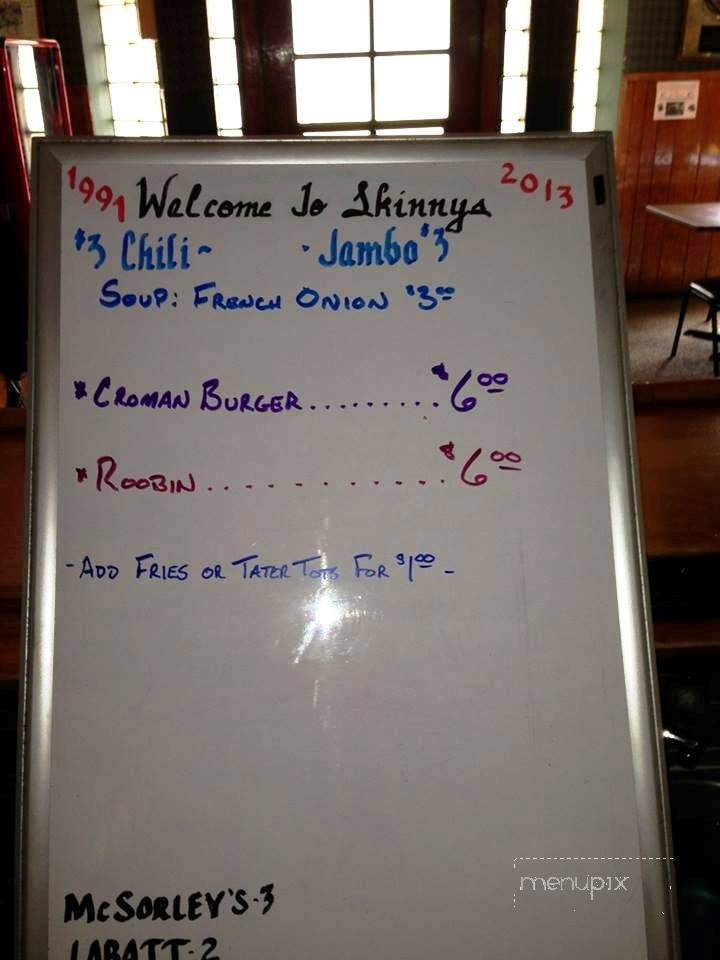 1991 Welcome To Skinnys 2013
$3 Chili ~ - Jambo $3
SOUP: FRENCH ONION $3.00
* CROMAN BURGER......... $6.00
* ROOBIN............ $6.00
- ADD FRIES OR TATER TOTS FOR $1.00 -
menupix
McSORLEY'S-3
LABATT-2